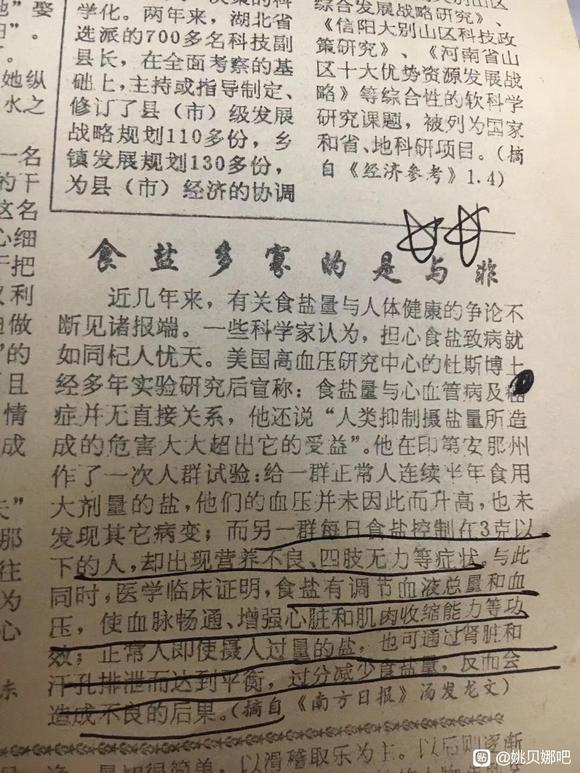 她纵
水之
一名
的干
这名
心细
于把
权利
自做
”的
且
情
成
夫”
那
往
为
心
东
学化。两年来，湖北省
选派的700多名科技副
县长，在全面考察的基
础上，主持或指导制定、
修订了县（市）级发展
战略规划110多份，乡
镇发展规划130多份，
为县（市）经济的协调
综合发展战略研究》、
《信阳大别山区科技政
策研究》、《河南省山
区十大优势资源发展战
略》等综合性的软科学
研究课题，被列为国家
和省、地科研项目。（摘
自《经济参考》1.4）
食盐多寡的是与非
近几年来，有关食盐量与人体健康的争论不
断见诸报端。一些科学家认为，担心食盐致病就
如同杞人忧天。美国高血压研究中心的杜斯博士
经多年实验研究后宣称：食盐量与心血管病及
症并无直接关系，他还说“人类抑制摄盐量所造
成的危害大大超出它的受益”。他在印第安那州
作了一次人群试验：给一群正常人连续半年食用
大剂量的盐，他们的血压并未因此而升高，也未
发现其它病变；而另一群每日食盐控制在3克以
下的人，却出现营养不良、四肢无力等症状。与此
同时，医学临床证明，食盐有调节血液总量和血
压，使血脉畅通、增强心脏和肌肉收缩能力等功
效；正常人即使摄入过量的盐，也可通过肾脏和
汗孔排泄而达到平衡，过分减少食盐量，反而会
造成不良的后果。（摘自《南方日报》汤发龙文）
是切很简单，以滑稽取乐为主。以后则逐渐
贴 @姚贝娜吧